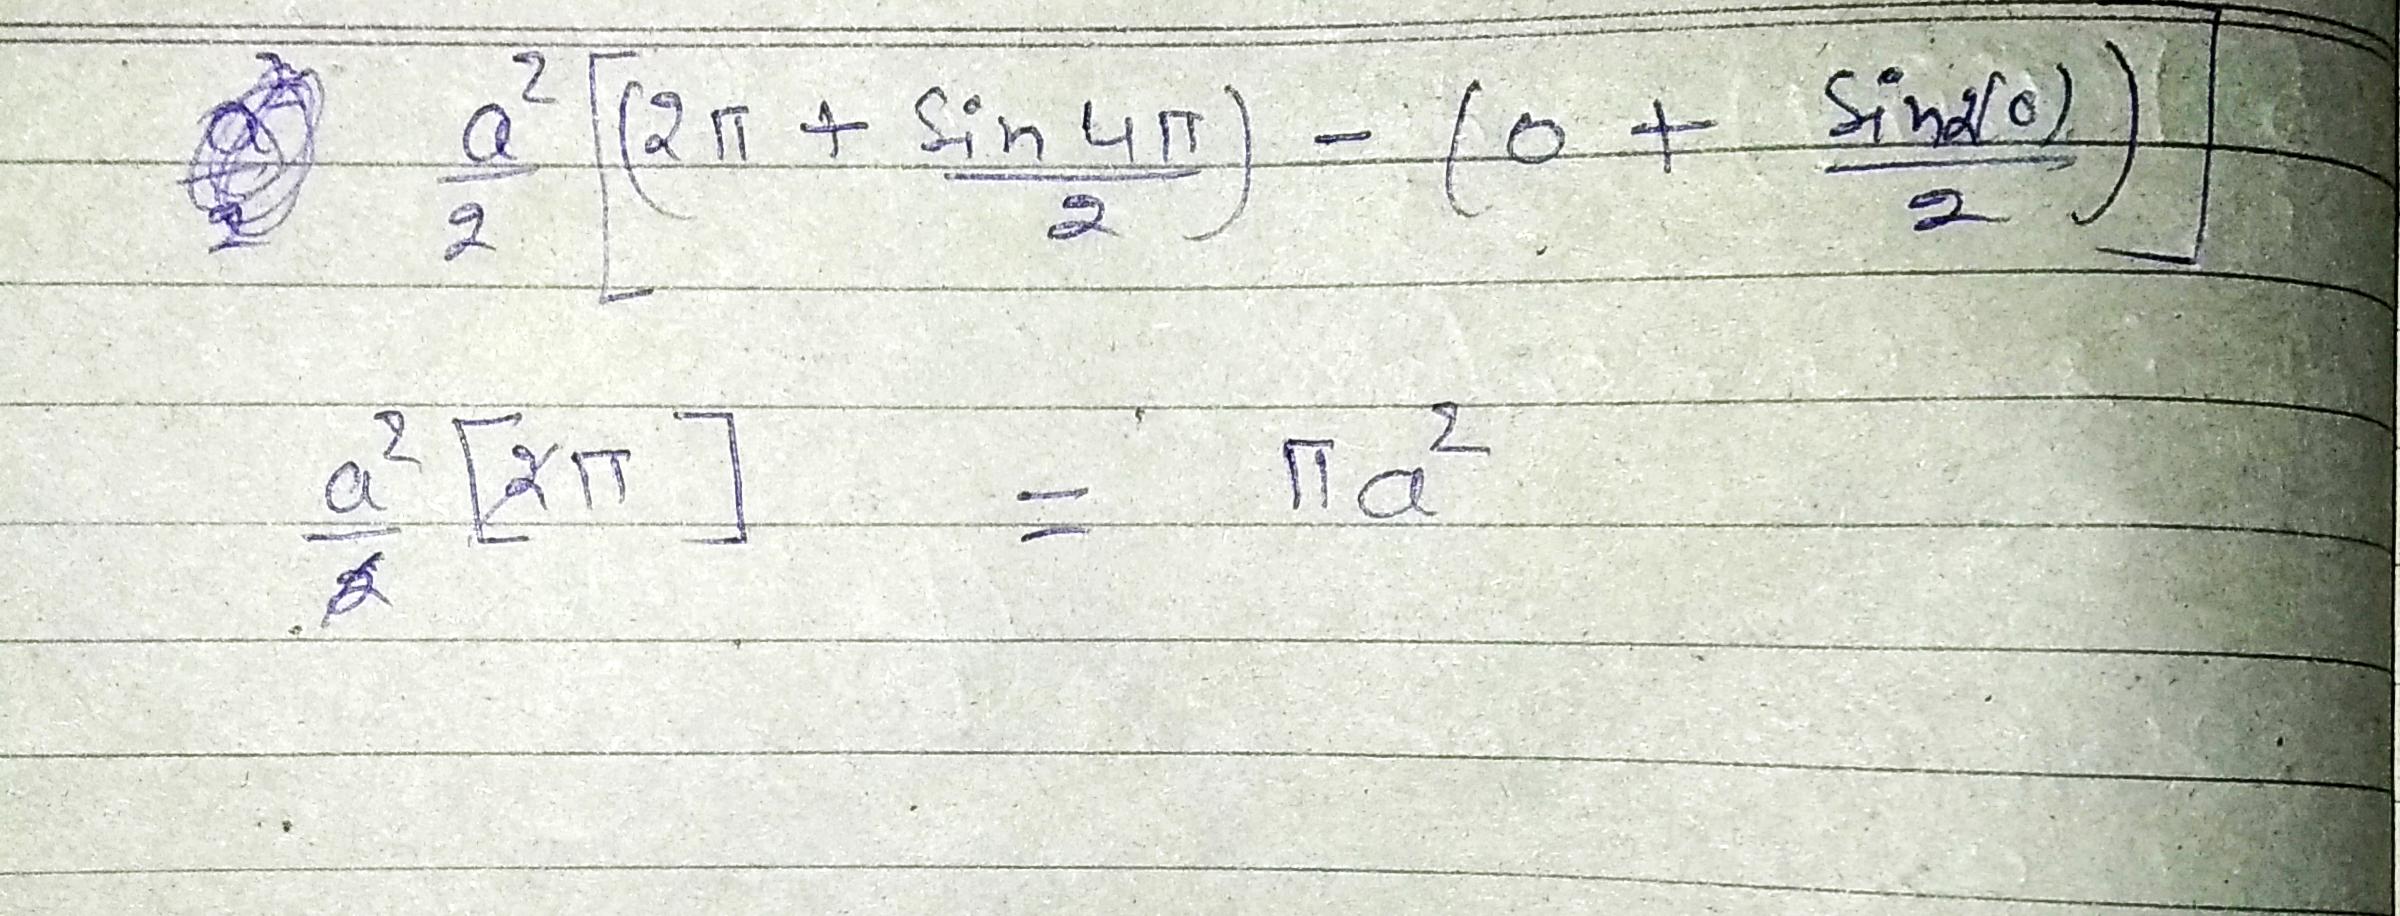 a²/2 [(2π + sin 4π/2) - (0 + sin2(0)/2)]
a²/2 [2π] = πa²